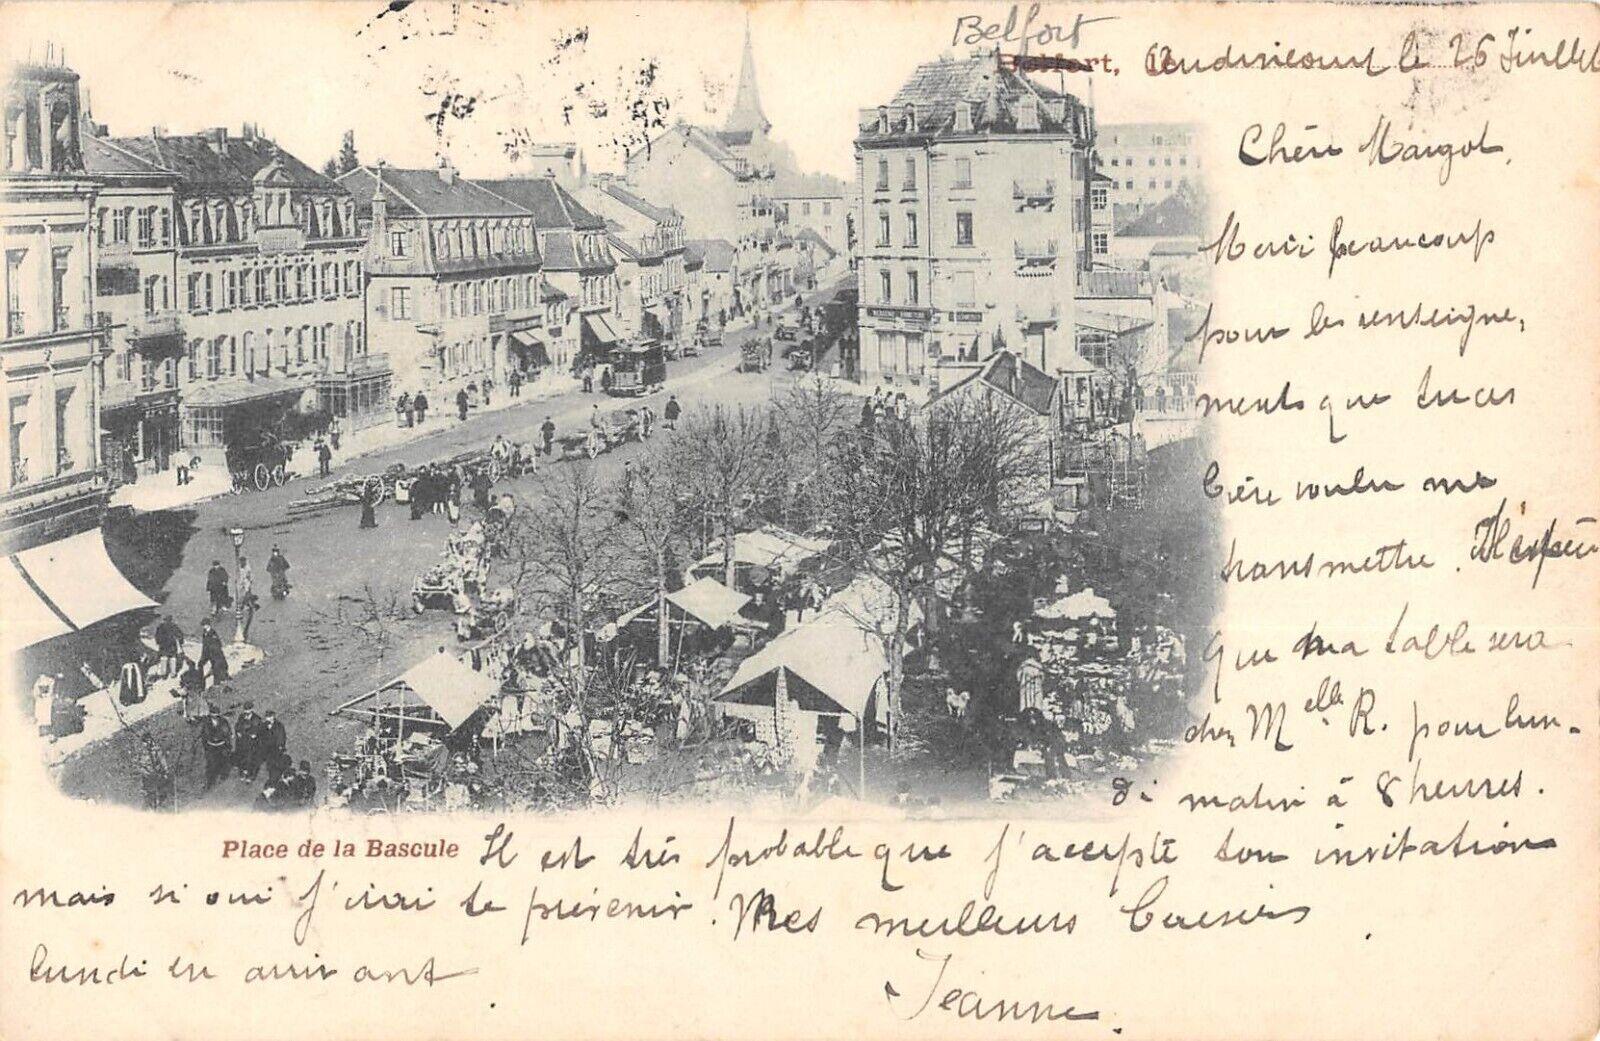 Belfort
Belfort, le 26 Juillet
Chère Margot,
Merci beaucoup
pour les renseigne,
ments que tu as
bien voulu me
transmettre. J'espère
que ma table sera
chez Melle R. pour lun-
di matin à 8 heures.
Place de la Bascule Il est très probable que j'accepte ton invitation
mais si oui j'irai te prévenir. Mes meilleurs baisers
lundi en arrivant
Jeanne.